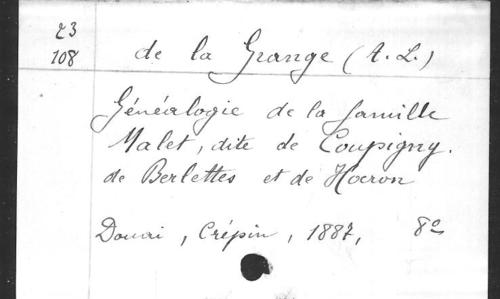 23
108
de la Grange (A. L.)
Généalogie de la famille
Malet, dite de Coupigny.
de Berlettes et de Hocron
Douai, Crépin, 1887, 8º